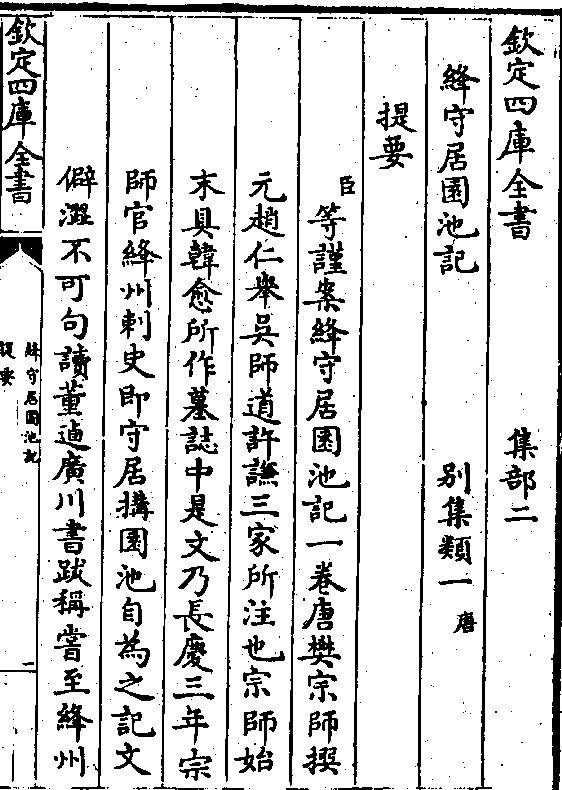 欽定四庫全書　集部二
絳守居園池記　别集類一唐
提要
臣等謹案絳守居園池記一卷唐樊宗師撰
元趙仁舉吳師道許謙三家所注也宗師始
末具韓愈所作墓誌中是文乃長慶三年宗
師官絳州刺史即守居搆園池自為之記文
僻澀不可句讀董逌廣川書跋稱嘗至絳州
欽定四庫全書
絳守居園池記
提要
一